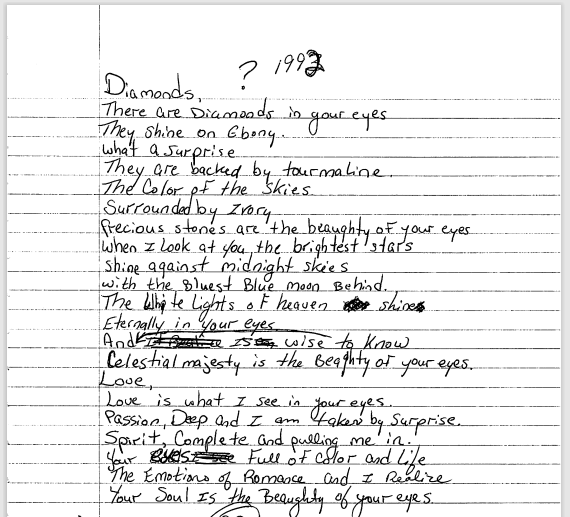 ? 1993
Diamonds,
There are Diamonds in your eyes
They shine on Ebony.
what a surprise
They are backed by tourmaline.
The Color of the skies
Surrounded by Ivory
Precious stones are the beaughty of your eyes
when I look at you the brightest stars
shine against midnight skies
with the Bluest Blue moon Behind.
The White Lights of heaven shines
Eternally in your eyes
And Is wise to know
Celestial majesty is the Beaghty of your eyes.
Love,
Love is what I see in your eyes.
Passion, Deep and I am taken by Surprise.
Spirit, Complete and pulling me in.
Your Full of Color and Life
The Emotions of Romance and I Realize
Your Soul Is the Beaughty of your eyes.